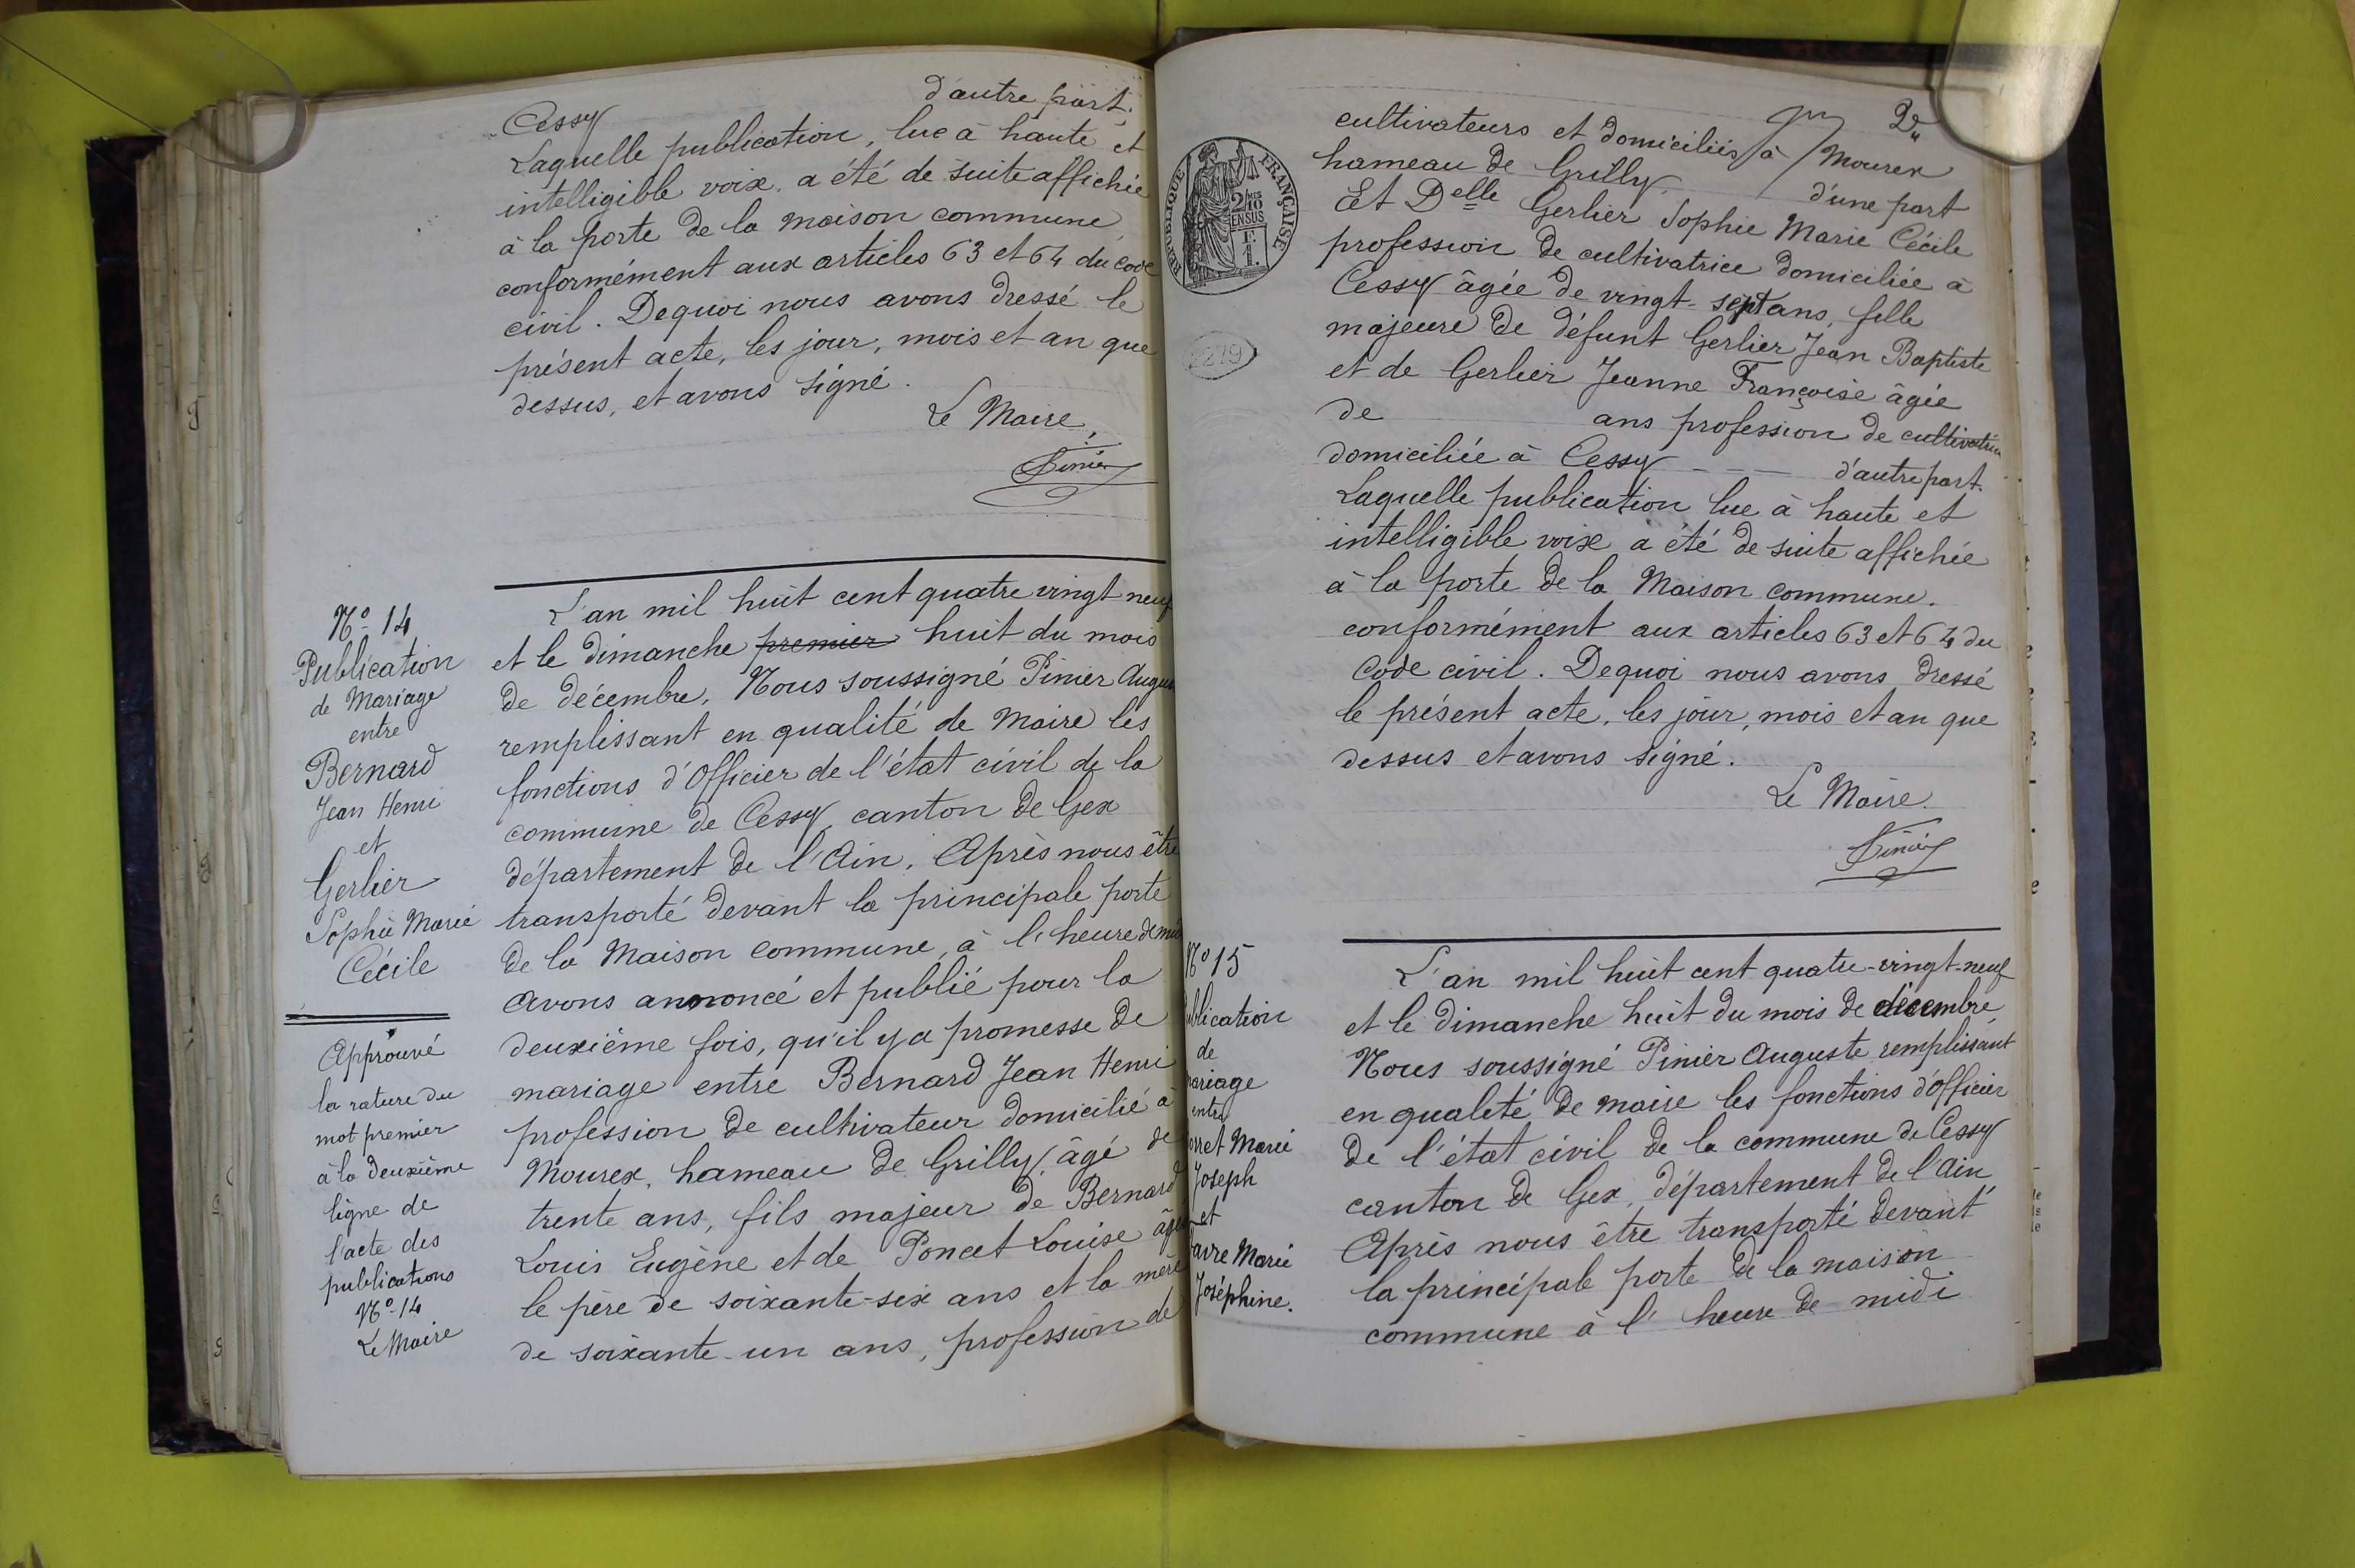 d'autre part.
Cessy
Laquelle publication, lue à haute et
intelligible voix, a été de suite affichée
à la porte de la maison commune,
conformément aux articles 63 et 64 du code
civil. Dequoi nous avons dressé le
présent acte, les jour, mois et an que
dessus, et avons signé.
Le Maire,
Pinier
N° 14
Publication
de Mariage
entre
Bernard
Jean Henri
et
Gerlier
Sophie Marie
Cécile
Approuvé
la rature du
mot premier
à la deuxième
ligne de
l'acte des
publications
N° 14
Le Maire
L'an mil huit cent quatre vingt neuf
et le dimanche premier huit du mois
de décembre, Nous soussigné Pinier Augus
remplissant en qualité de Maire les
fonctions d'Officier de l'état civil de la
commune de Cessy canton de Gex
département de l'Ain, Après nous être
transporté devant la principale porte
de la Maison commune, à l'heure de mid
avons annoncé et publié pour la
deuxième fois, qu'il y a promesse de
mariage entre Bernard Jean Henri
profession de cultivateur domicilié à
Mourex, hameau de Grilly, âgé de
trente ans, fils majeur de Bernard
Louis Eugène et de Poncet Louise âgés
le père de soixante-six ans et la mère
de soixante-un ans, profession de
2e
cultivateurs et domiciliés à Mourex
hameau de Grilly. d'une part
Et Delle Gerlier Sophie Marie Cécile
profession de cultivatrice domiciliée à
Cessy âgée de vingt-sept ans, fille
majeure de défunt Gerlier Jean Baptiste
et de Gerlier Jeanne Françoise âgée
de ans profession de cultivatrice
domiciliée à Cessy --- d'autre part.
Laquelle publication lue à haute et
intelligible voix a été de suite affichée
à la porte de la Maison commune.
conformément aux articles 63 et 64 du
Code civil. Dequoi nous avons dressé
le présent acte, les jour, mois et an que
dessus et avons signé.
Le Maire.
Pinier
RÉPUBLIQUE FRANÇAISE
2/10
EN SUS
1F.
2219
N° 15
ublication
de
ariage
entre
rret Marie
Joseph
et
avre Marie
Joséphine.
L'an mil huit cent quatre-vingt-neuf
et le dimanche huit du mois de décembre,
Nous soussigné Pinier Auguste remplissant
en qualité de maire les fonctions d'officier
de l'état civil de la commune de Cessy
canton de Gex, département de l'Ain
Après nous être transporté devant
la principale porte de la maison
commune à l'heure de midi